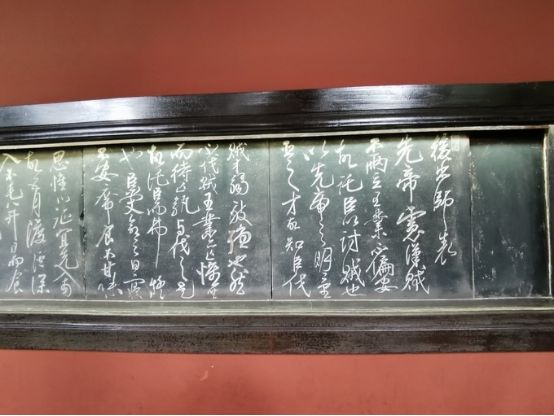 後出師表
先帝慮漢賊
不兩立王業不偏安
故託臣以討賊也
以先帝之明量
臣之才故知臣伐
賊才弱敵強也然
不伐賊王業亦亡惟坐
而待亡孰與伐之是
故託臣而弗疑
也臣受命之日寢
不安席食不甘味
思惟北征宜先入南
故五月渡瀘深
入不毛并日而食